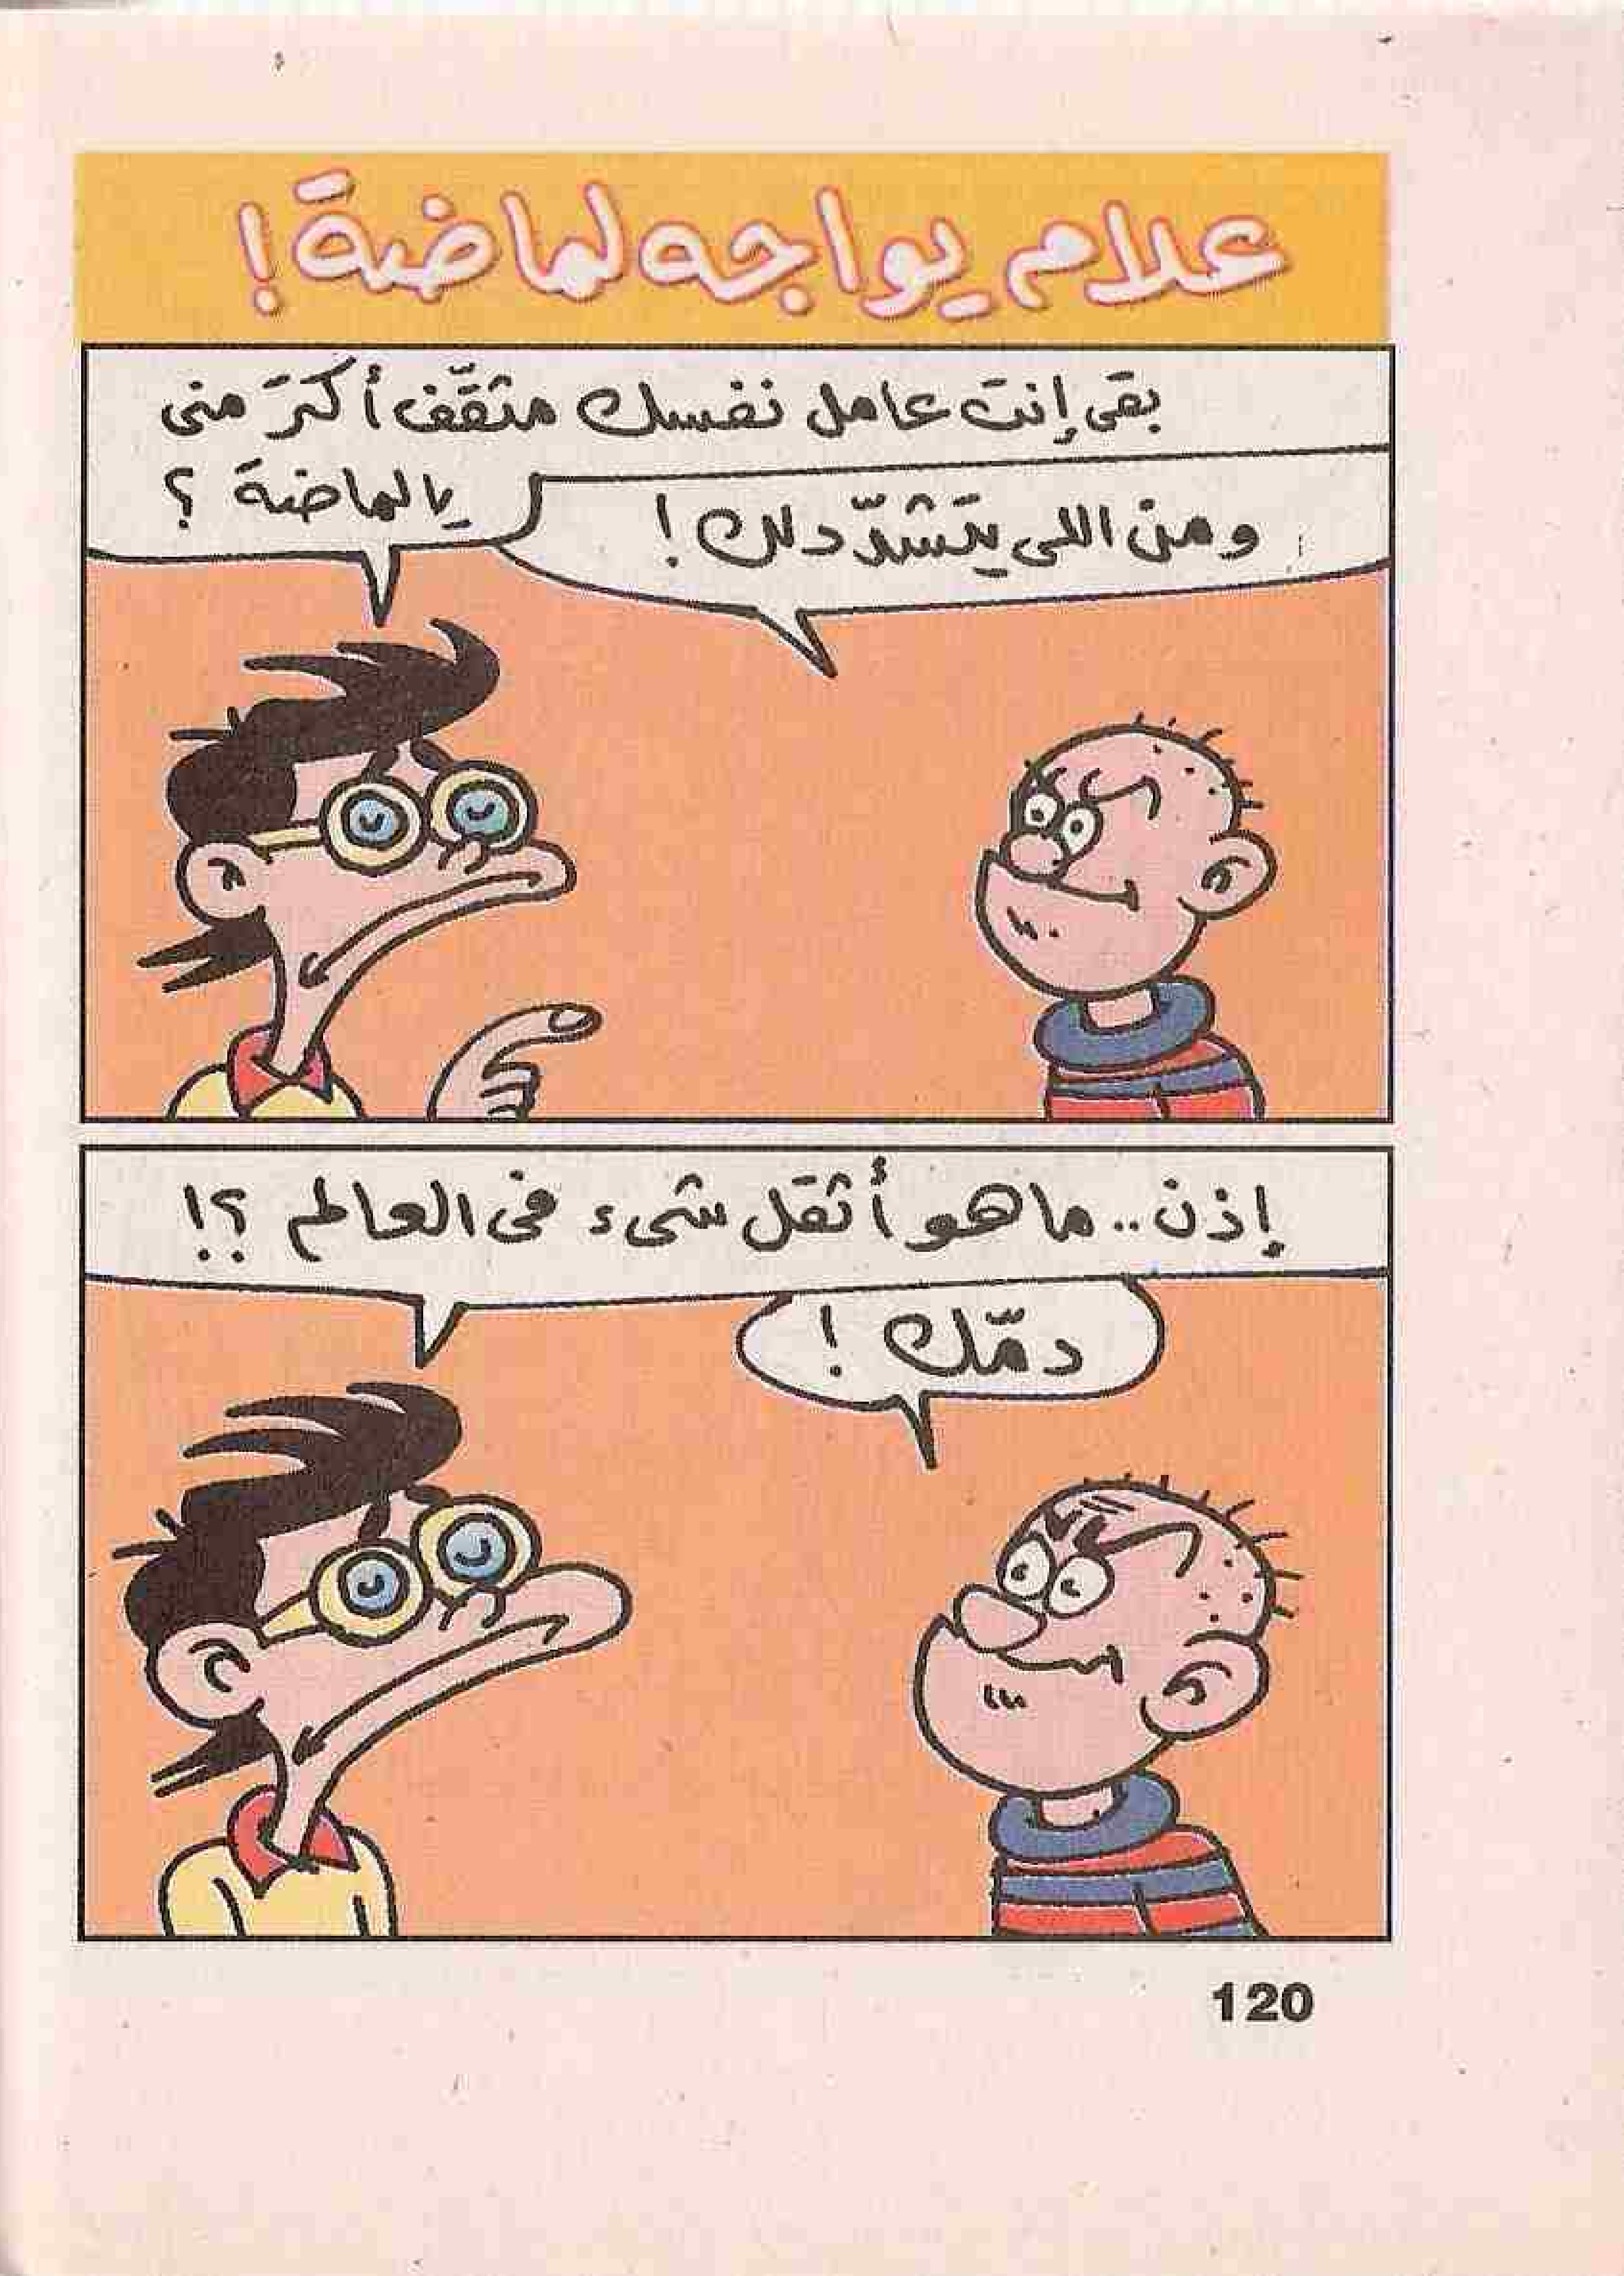 علام يواجه لماضة!
بقى إنت عامل نفسك مثقّف أكتر منى
يا لماضة ؟
ومن اللى يتشدّد لك !
إذن.. ما هو أثقل شىء فى العالم ؟!
دمّك !
120